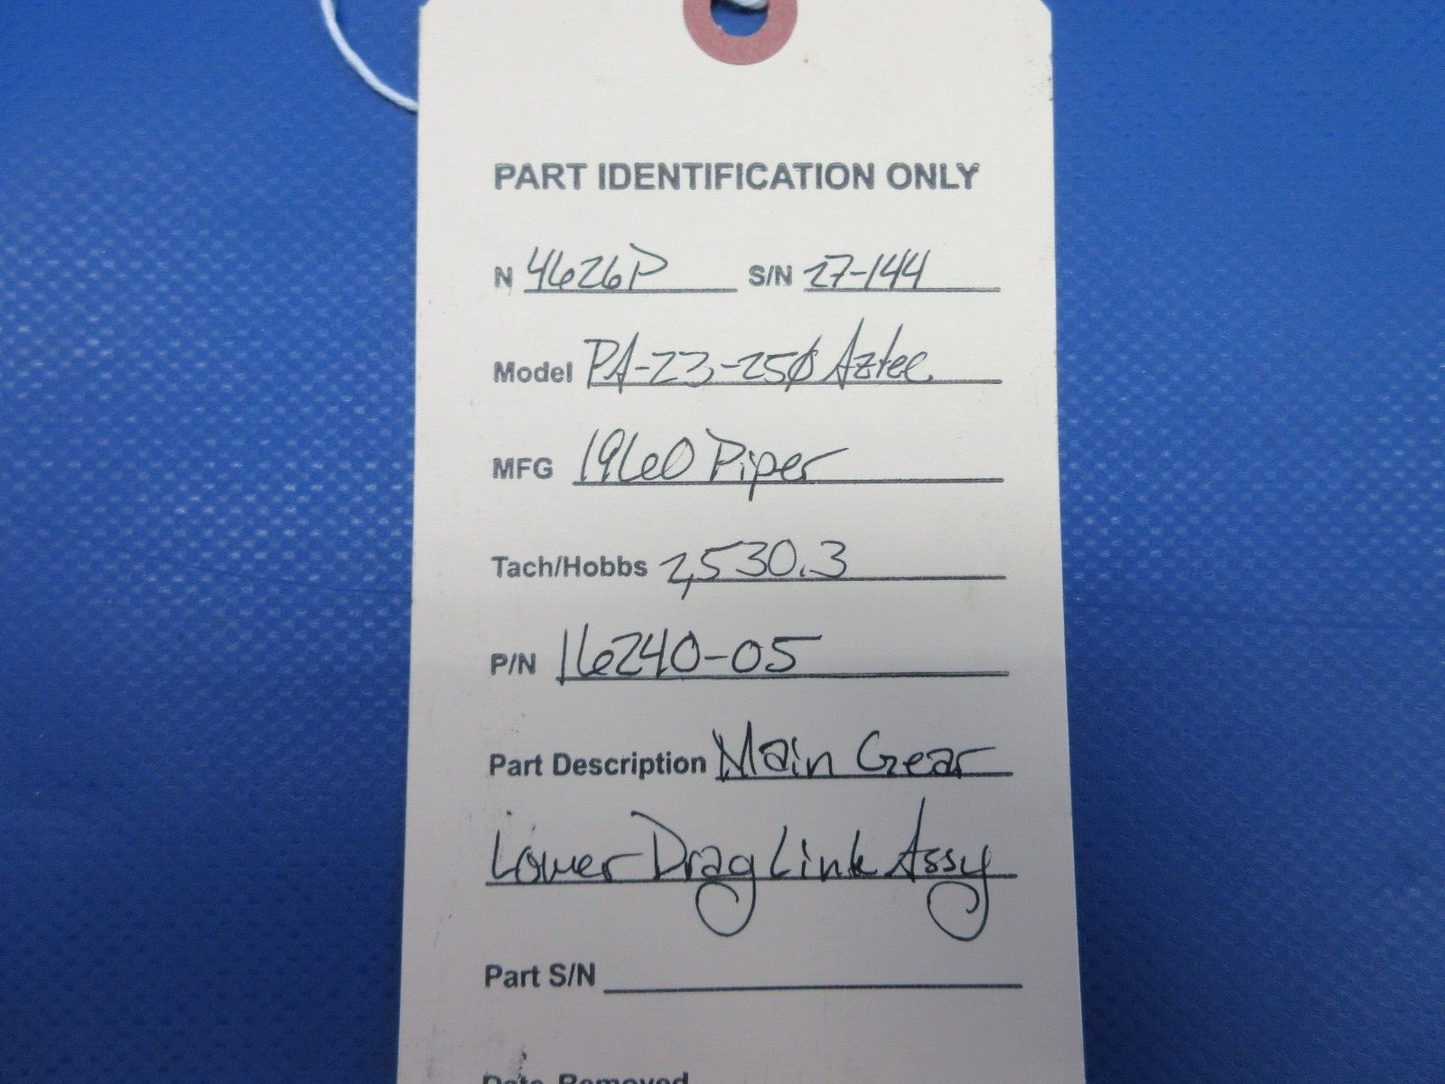 PART IDENTIFICATION ONLY
N 4626P S/N 27-144
Model PA-23-250 Aztec
MFG 1960 Piper
Tach/Hobbs 2,530.3
P/N 16240-05
Part Description Main Gear
Lower Drag Link Assy
Part S/N
Date Removed